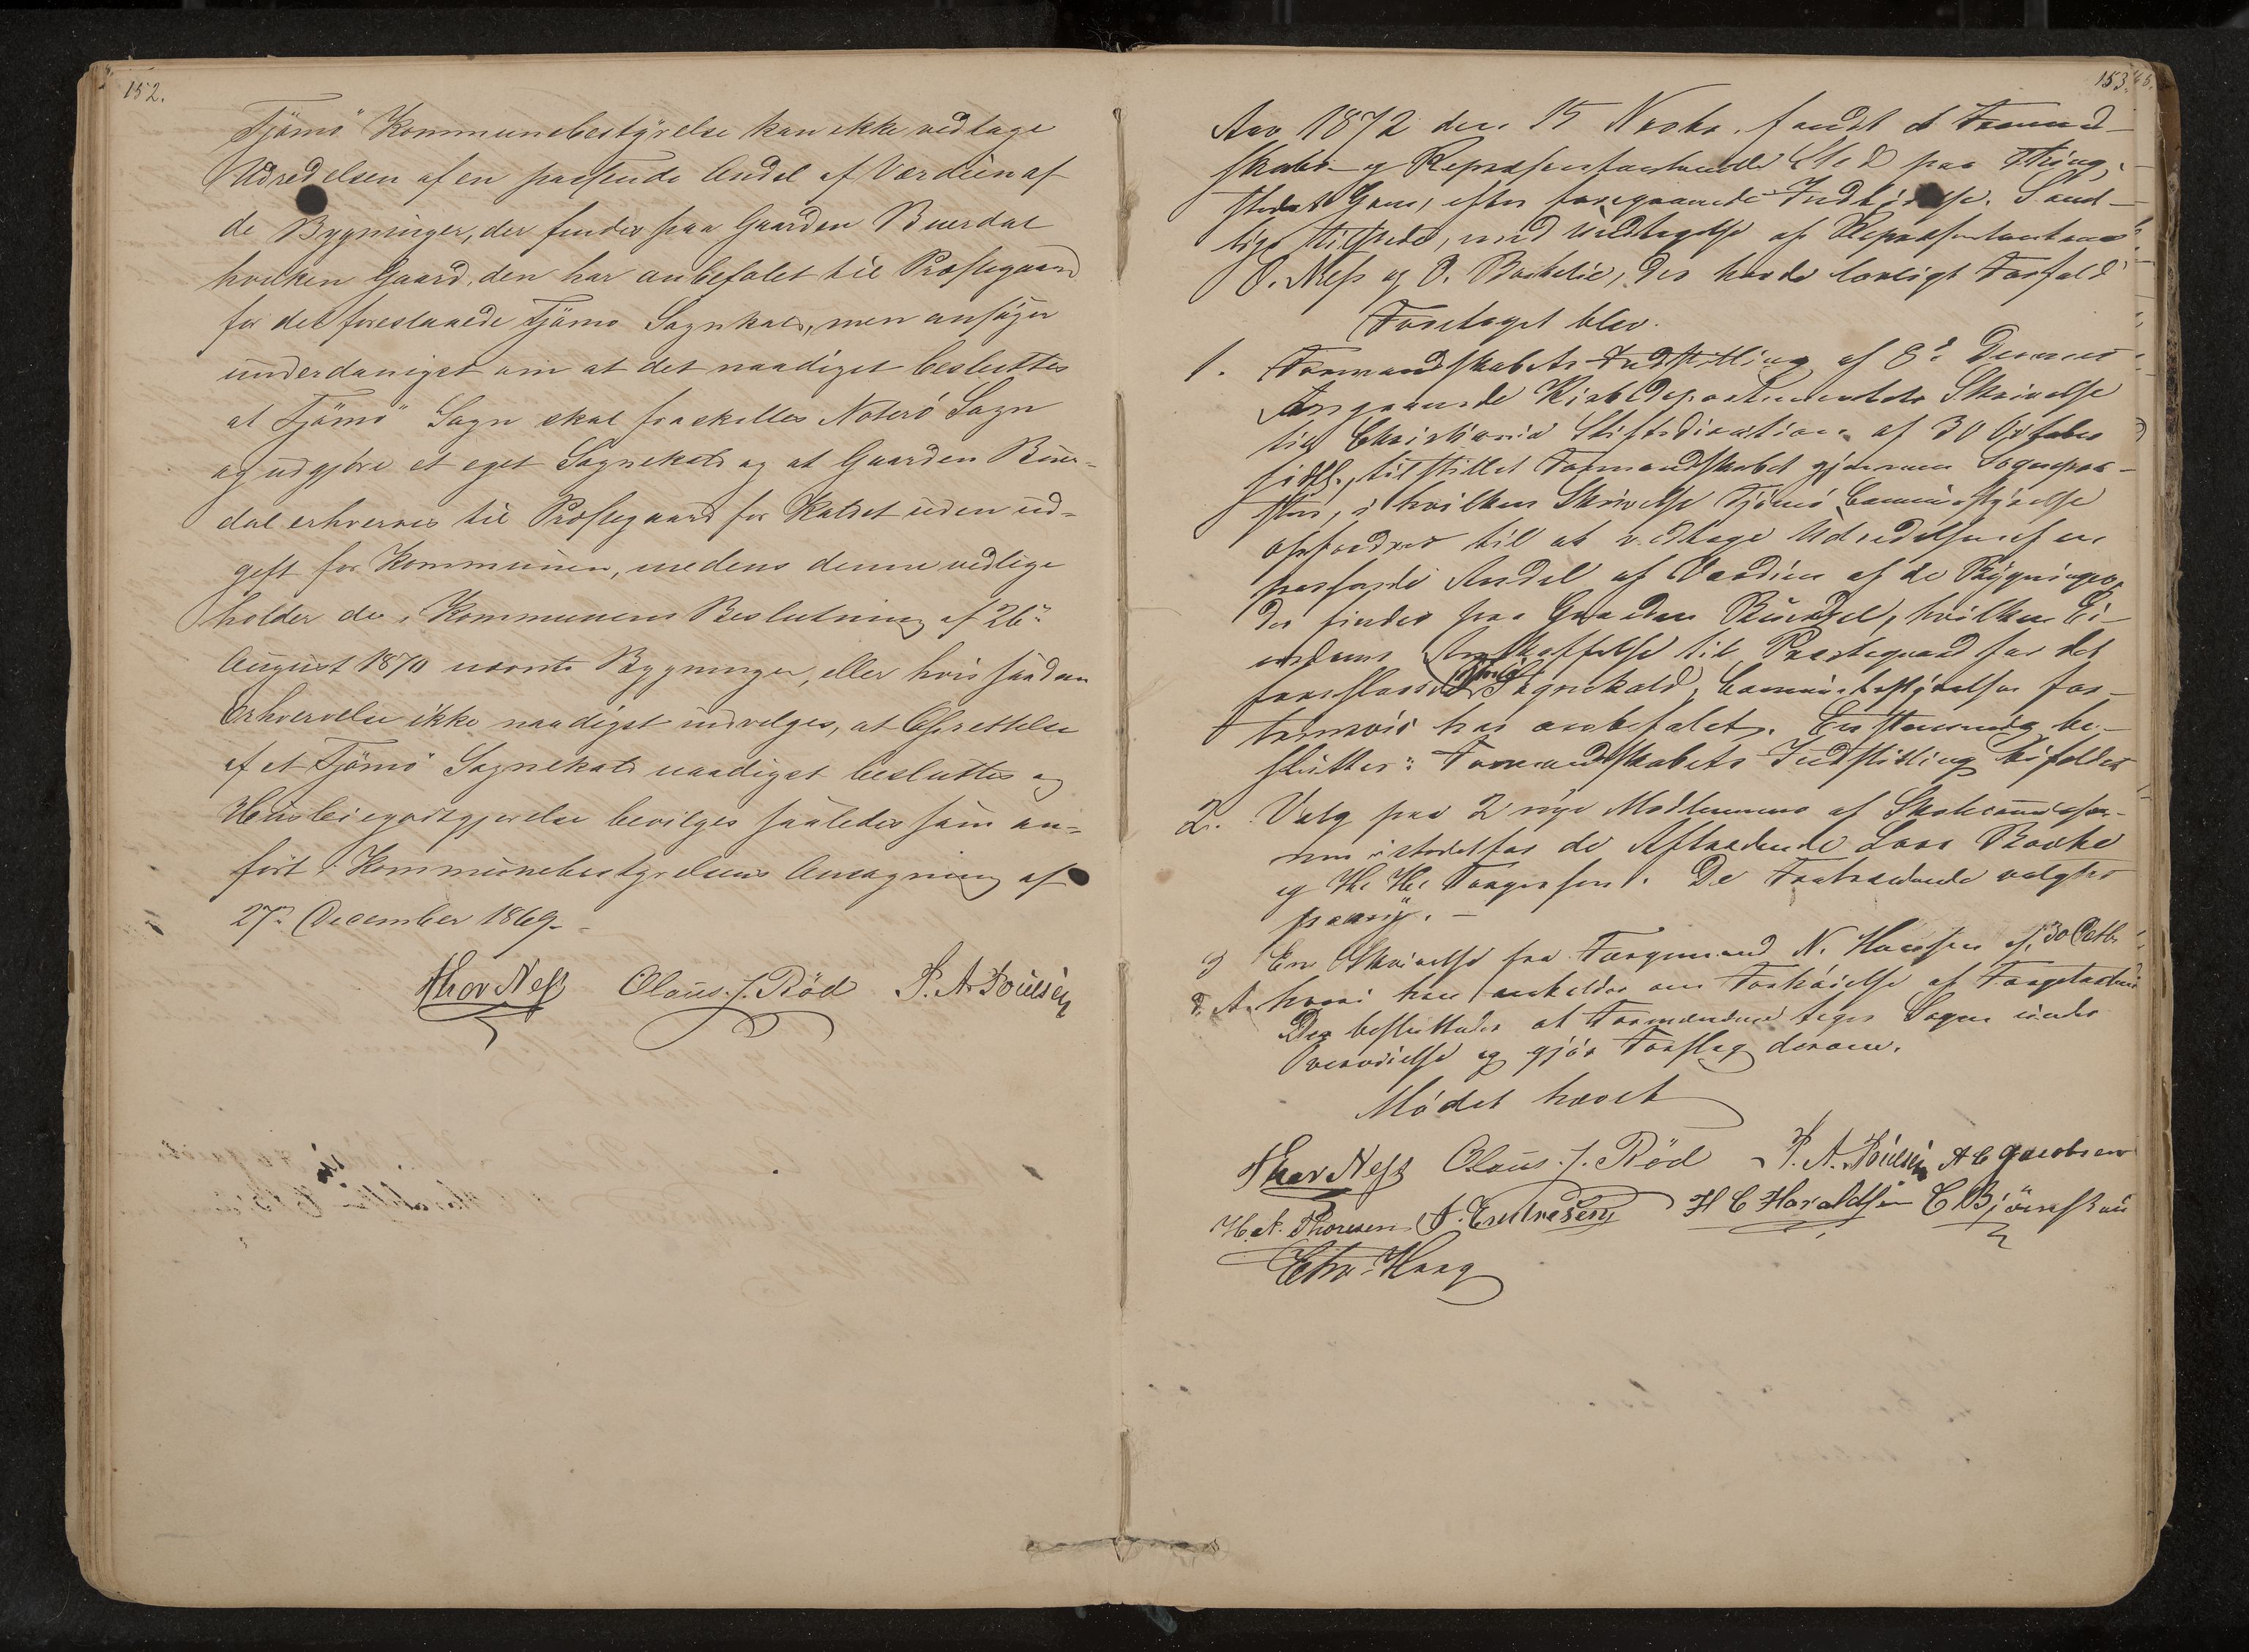 152.
Tjömö Kommunebestyrelse kan ikke vedtage
Udredelsen af en passende Andel af Værdien af
de Bygninger, der findes paa Gaarden Buerdal
hvilken Gaard, den har anbefalet til Præstegaard
for det foreslaaede Tjömö Sognkald, men ansöger
underdanigst om at det naadigst besluttes
at Tjömö Sogn skal fraskilles Noterö Sogn
og udgjöre et eget Sognekald og at Gaarden Buer-
dal erhverves til Præstegaard for Kaldet uden ud-
gift for Kommunen, medens denne vedlige
holder de i Kommunens Beslutning af 26de
August 1870 nævnte Bygninger, eller hvis saadan
Erhvervelse ikke naadigst indvilges, at Oprettelse
af et Tjömö Sognekald naadigst besluttes og
Husleiegodtgjørelse bevilges saaledes som an-
fört i Kommunebestyrelsens Ansøgning af
27de December 1869.
Thor Ness Olaus J. Röd P. A. Poulsen
153.
Aar 1872 den 15 Novbr. fandt et Formand-
skabs- og Repræsentantmøde Sted paa Thing-
stedet Gaun, efter foregaaende Indkaldelse. Samt-
lige tilstede, med Undtagelse af Repræsentanterne
O. Ness og O. Bakelie, der havde lovligt Forfald
Foretaget blev.
1. Formandskabets Indstilling af 8de Dennes
Angaaende Kirkedepartementets Skrivelse
til Christiania Stiftsdirektion af 30 Oktober
sidstl., tilstillet Formandskabet gjennem Sognepræ-
sten, i hvilken Skrivelse Tjömö Communestyrelse
opfordres til at vedtage Udredelsen af en
passende Andel af Værdien af de Bygninger,
der findes paa Gaarden Buerdal, hvilken Ei-
endoms Anskaffelse til Præstegaard for det
foreslaaede Sognekald, Communebestyrelsen for-
trinsvis har anbefalet. Enstemmig be-
sluttes: Formandskabets Indstilling bifaldes
2. Valg paa 2 nye Medlemmer af Skolecommissio-
nen istedetfor de Aftrædende Lars Bakke
og H. H. Torgersen. De Fratrædende valgtes
paany. —
3 En Skrivelse fra Færgemand N. Hansen af 30 Octbr
d. A. hvori han anholder om Forhöielse af Færgetaxten
Der besluttedes at Formændene tager Sagen under
Overveielse og gjör Forslag derom.
Mödet hævet
Thor Ness Olaus J. Röd P. A. Poulsen A C Jacobsen
H. A. Thoresen A. Endresen H C Haraldsen C Björnskau
Chr. Haug